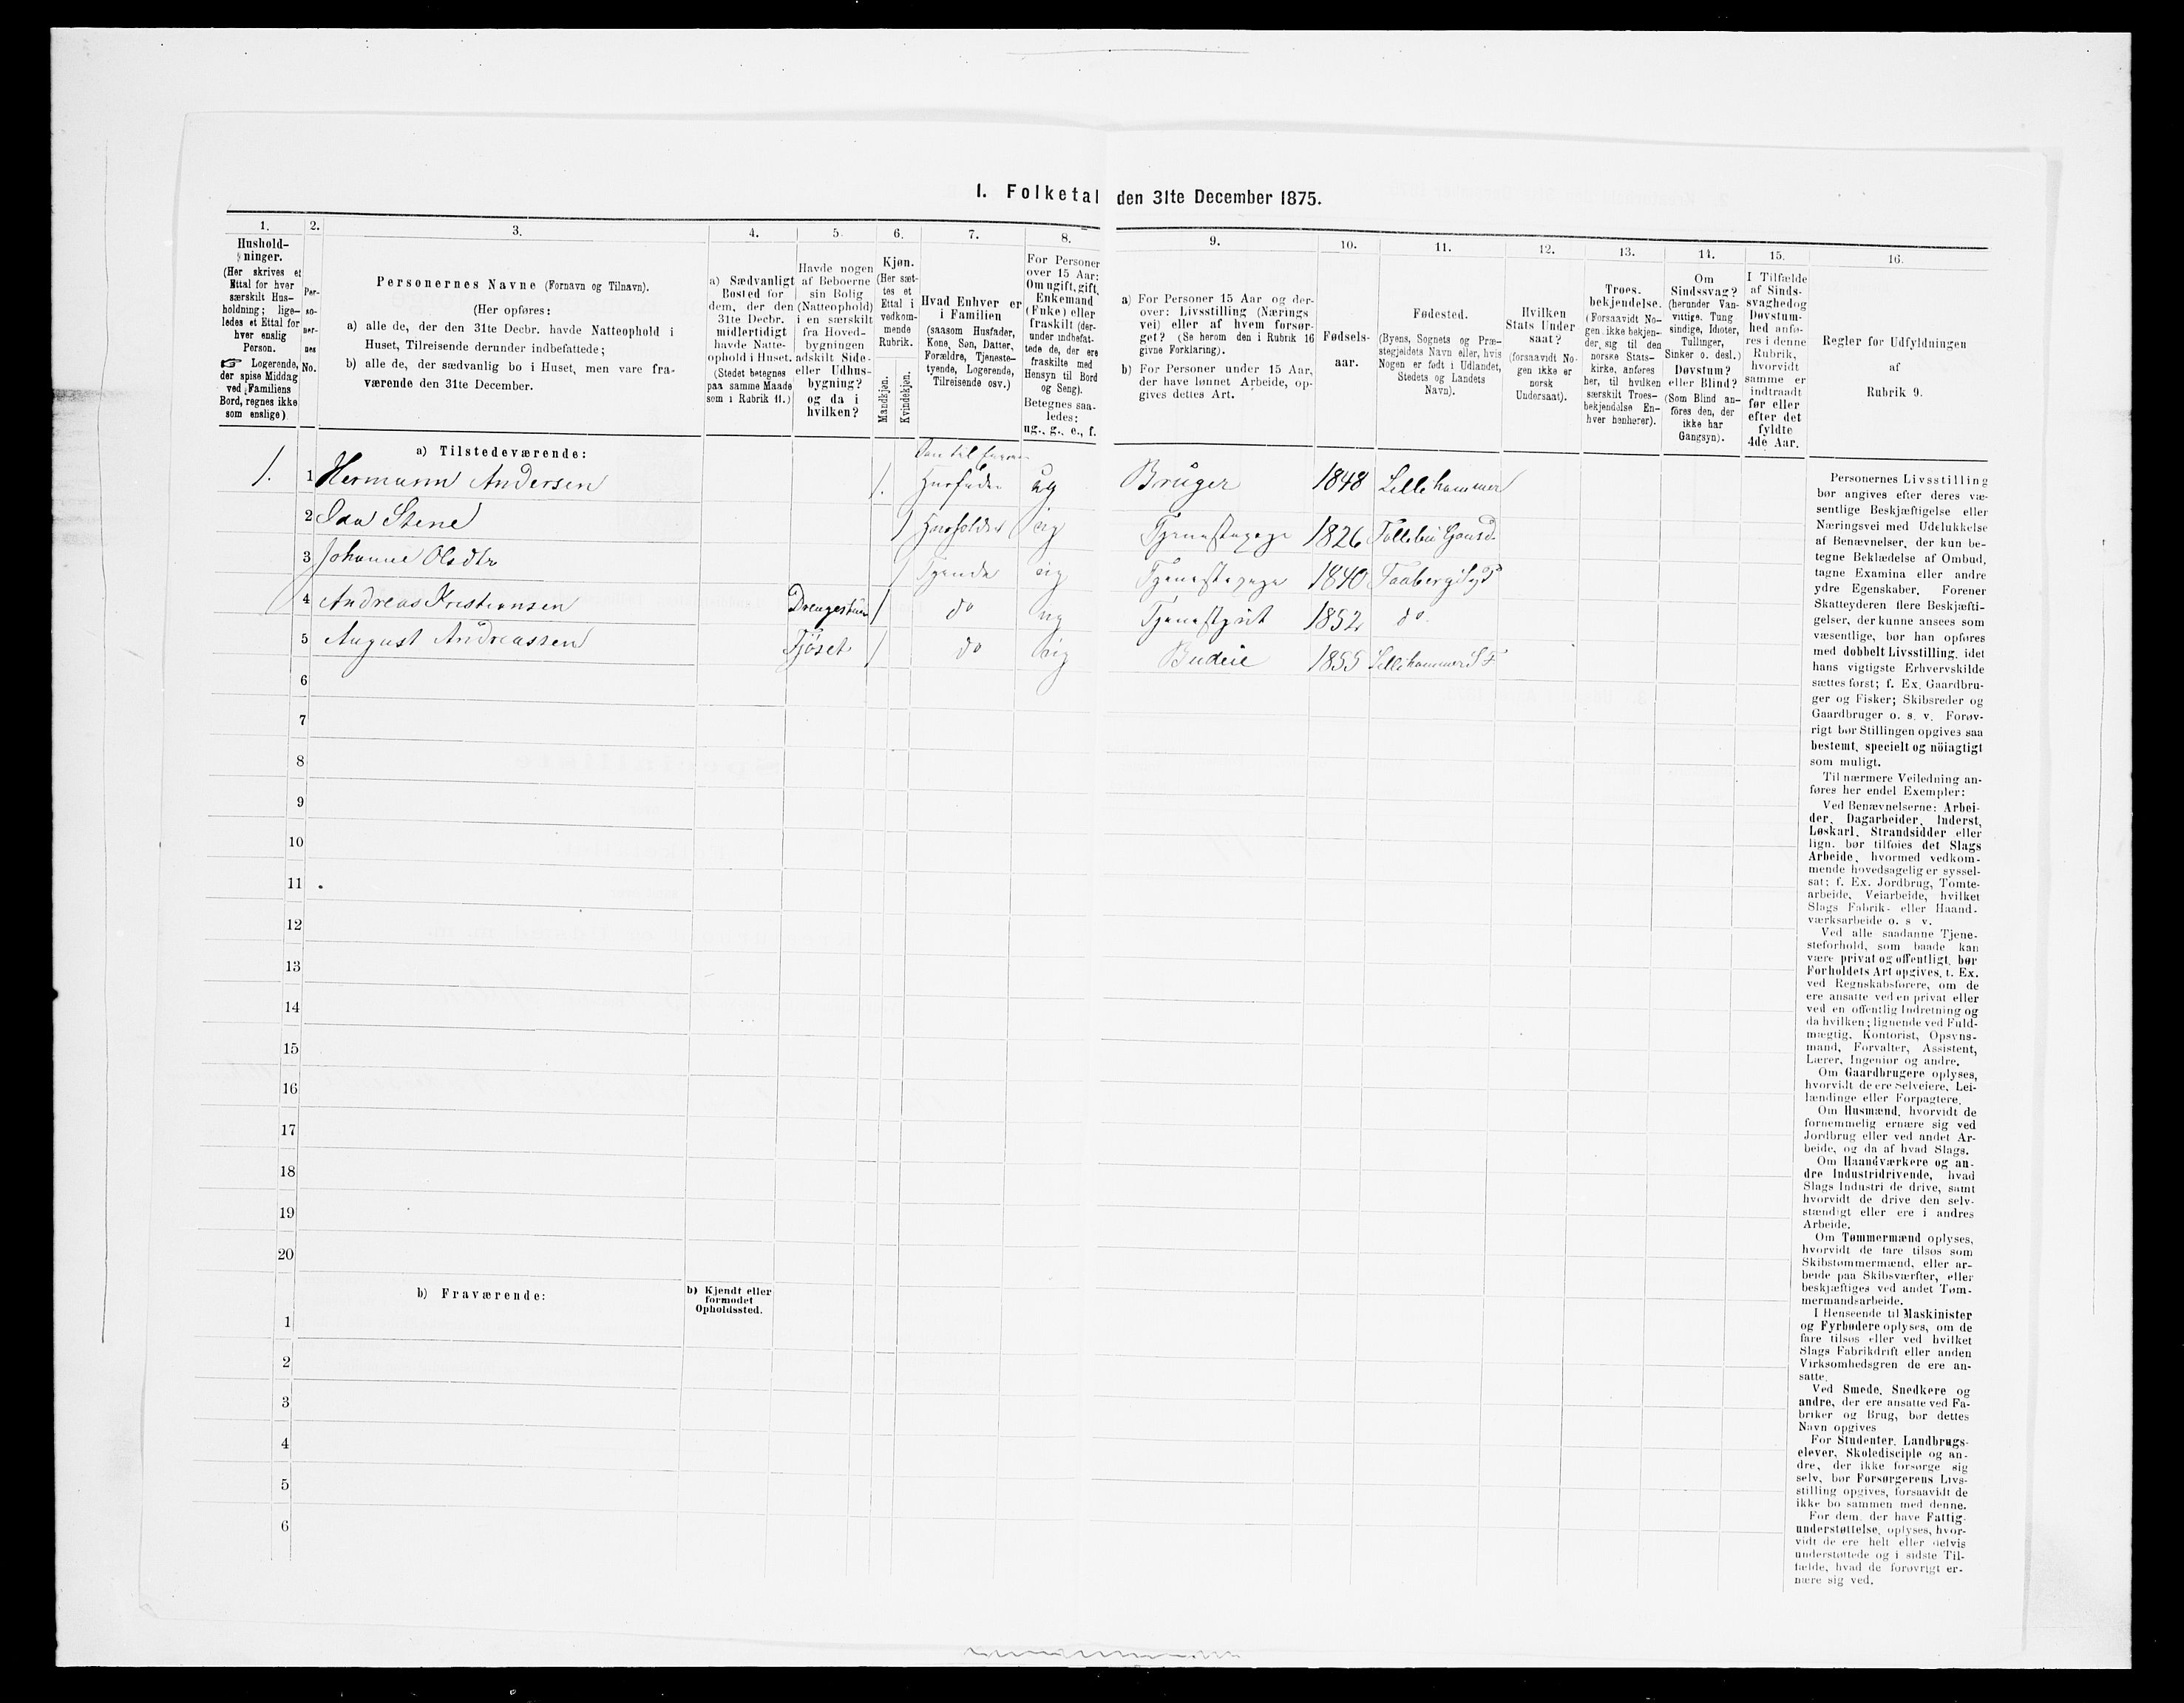 I. Folketal den 31te December 1875.
1.
Hushold-
ninger.
(Her skrives et
Ettal for hver
særskilt Hus-
holdning; lige-
ledes et Ettal for
hver enslig
Person.
☞ Logerende,
der spise Middag
ved Familiens
Bord, regnes ikke
som enslige)
2.
Per-
so-
ner-
nes
No.
3.
Personernes Navne (Fornavn og Tilnavn).
(Her opføres:
a) alle de, der den 31te Decbr. havde Natteophold i
Huset, Tilreisende derunder indbefattede;
b) alle de, der sædvanlig bo i Huset, men vare fra-
værende den 31te December.
4.
a) Sædvanligt
Bosted for
dem, der den
31te Decbr.
midlertidigt
havde Natte-
ophold i Huset.
(Stedet betegnes
paa samme Maade
som i Rubrik 11.)
5.
Havde nogen
af Beboerne
sin Bolig
(Natteophold)
i en særskilt
fra Hoved-
bygningen
adskilt Side-
eller Udhus-
bygning?
og da i
hvilken?
6.
Kjøn.
(Her sæt-
tes et
Ettal i
vedkom-
mende
Rubrik.
Mandkjøn.
Kvindekjøn.
7.
Hvad Enhver er
i Familien
(saasom Husfader,
Kone, Søn, Datter,
Forældre, Tjeneste-
tyende, Logerende,
Tilreisende osv.)
8.
For Personer
over 15 Aar:
Om ugift, gift,
Enkemand
(Enke) eller
fraskilt (der-
under indbefat-
tede de, der ere
fraskilte med
Hensyn til Bord
og Seng).
Betegnes saa-
ledes:
ug., g., e., f.
9.
a) For Personer 15 Aar og der-
over: Livsstilling (Nærings
vei) eller af hvem forsør-
get? (Se herom den i Rubrik 16
givne Forklaring).
b) For Personer under 15 Aar,
der have lønnet Arbeide, op-
gives dettes Art.
10.
Fødsels-
aar.
11.
Fødested.
(Byens, Sognets og Præ-
stegjeldets Navn eller, hvis
Nogen er født i Udlandet,
Stedets og Landets
Navn).
12.
Hvilken
Stats Under
saat?
(forsaavidt No-
gen ikke er
norsk
Undersaat).
13.
Troes-
bekjendelse.
(Forsaavidt No-
gen ikke bekjen-
der sig til den
norske Stats-
kirke, anføres
her, til hvilken
særskilt Troes-
bekjendelse En-
hver henhører).
14.
Om
Sindssvag?
(herunder Van-
vittige, Tung
sindige, Idioter,
Tullinger,
Sinker o. desl.)
Døvstum?
eller Blind?
(Som Blind an-
føres den, der
ikke har
Gangsyn).
15.
I Tilfælde
af Sinds-
svaghed og
Døvstum-
hed anfø-
res i denne
Rubrik,
hvorvidt
samme er
indtraadt
før eller
efter det
fyldte
4de Aar.
16.
Regler for Udfyldningen
af
Rubrik 9.
a) Tilstedeværende:
1. 1 Hermann Andersen 1. Husfader ug Brüger 1848 Lillehammer
2 Oda Stene 1 ug 1826
3 Johanne Olsdtr 1 ug 1840
4 Andreas Kristiansen 1 do ug 1852 do
5 August Andreassen Fjöset 1 do ug Budeie 1855
6
7
8
9
10
11
12
13
14
15
16
17
18
19
20
b) Fraværende:
b) Kjendt eller
formodet
Opholdssted.
1
2
3
4
5
6
Personernes Livsstilling
bør angives efter deres væ-
sentlige Beskjæftigelse eller
Næringsvei med Udelukkelse
af Benævnelser, der kun be-
tegne Beklædelse af Ombud,
tagne Examina eller andre
ydre Egenskaber. Forener
Skatteyderen flere Beskjæfti-
gelser, der kunne ansees som
væsentlige, bør han opføres
med dobbelt Livsstilling, idet
hans vigtigste Erhvervskilde
sættes først; f. Ex. Gaardbru-
ger og Fisker; Skibsreder og
Gaardbruger o. s. v. Forøv-
rigt bør Stillingen opgives saa
bestemt, specielt og nöiagtigt
som muligt.
Til nærmere Veiledning an-
føres her endel Exempler:
Ved Benævnelserne: Arbei-
der, Dagarbeider, Inderst,
Løskarl, Strandsidder eller
lign. bør tilføies det Slags
Arbeide, hvormed vedkom-
mende hovedsagelig er syssel-
sat; f. Ex. Jordbrug, Tomte-
arbeide, Veiarbeide, hvilket
Slags Fabrik- eller Haand-
værksarbeide o. s v.
Ved alle saadanne Tjene-
steforhold, som baade kan
være privat og offentligt, bør
Forholdets Art opgives, t. Ex.
ved Regnskabsførere, om de
ere ansatte ved en privat eller
ved en offentlig Indretning og
da hvilken; lignende ved Fuld-
mægtig, Kontorist, Opsyns-
mand, Forvalter, Assistent,
Lærer, Ingeniør og andre.
Om Gaardbrugere oplyses,
hvorvidt de ere Selveiere, Lei-
lændinge eller Forpagtere.
Om Husmænd, hvorvidt de
fornemmelig ernære sig ved
Jordbrug eller ved andet Ar-
beide, og da af hvad Slags.
Om Haandværkere og an-
dre Industridrivende, hvad
Slags Industri de drive, samt
hvorvidt de drive den selv-
stændigt eller ere i andres
Arbeide.
Om Tømmermænd oplyses,
hvorvidt de fare tilsøs som
Skibstømmermænd, eller ar-
beide paa Skibsværfter, eller
beskjæftiges ved andet Tøm-
mermandsarbeide.
I Henseende til Maskinister
og Fyrbødere oplyses, om de
fare tilsøs eller ved hvilket
Slags Fabrikdrift eller anden
Virksomhedsgren de ere an-
satte.
Ved Smede, Snedkere og
andre, der ere ansatte ved Fa-
briker og Brug, bør dettes
Navn opgives
For Studenter, Landbrugs-
elever, Skoledisciple og an-
dre, der ikke forsørge sig
selv, bør Forsørgerens Livs-
stilling opgives, forsaavidt de
ikke bo sammen med denne.
For dem, der have Fattig-
understøttelse, oplyses, hvor-
vidt de ere helt eller delvis
understøttede og i sidste Til-
fælde, hvad de forøvrigt er-
nære sig ved.